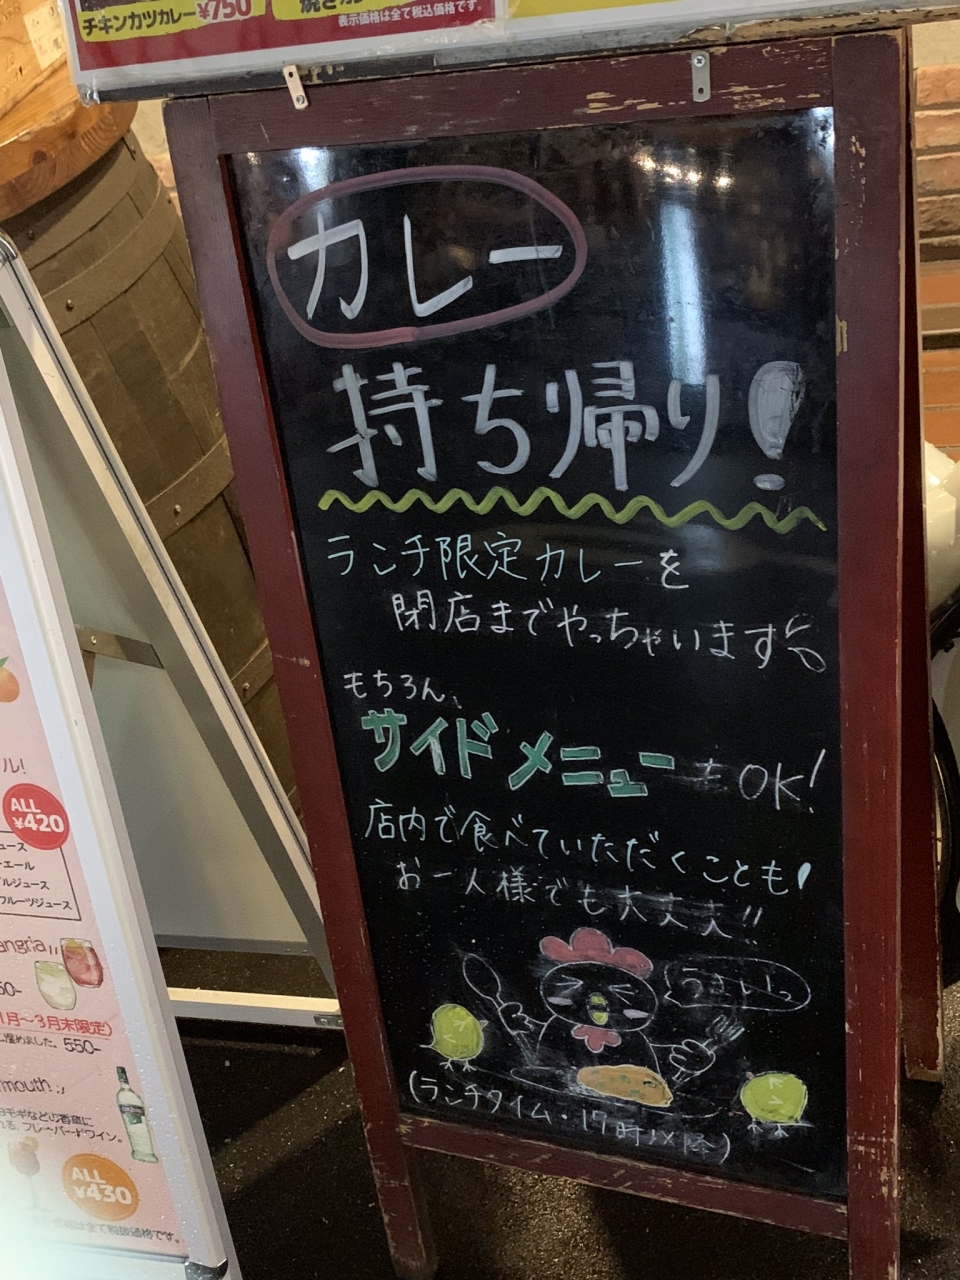 チキンカツカレー ¥750
表示価格は全て税込価格です。
カレー
持ち帰り!
ランチ限定カレーを
閉店までやっちゃいます
もちろん、
サイドメニューもOK!
店内で食べていただくことも!
お一人様でも大丈夫!!
うまいっ
(ランチタイム・17時以降)
ル!
ALL
¥420
ュース
エール
ルジュース
フルーツジュース
angria
50-
1月〜3月末限定)
550-
mouth
ALL
¥430